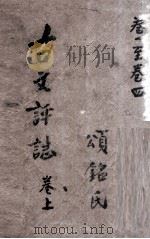 卷一至卷四
頌銘氏
古文評誌
卷上